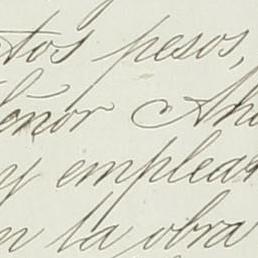 tos pesos,
eñor Ahu
y emplear
n la obra